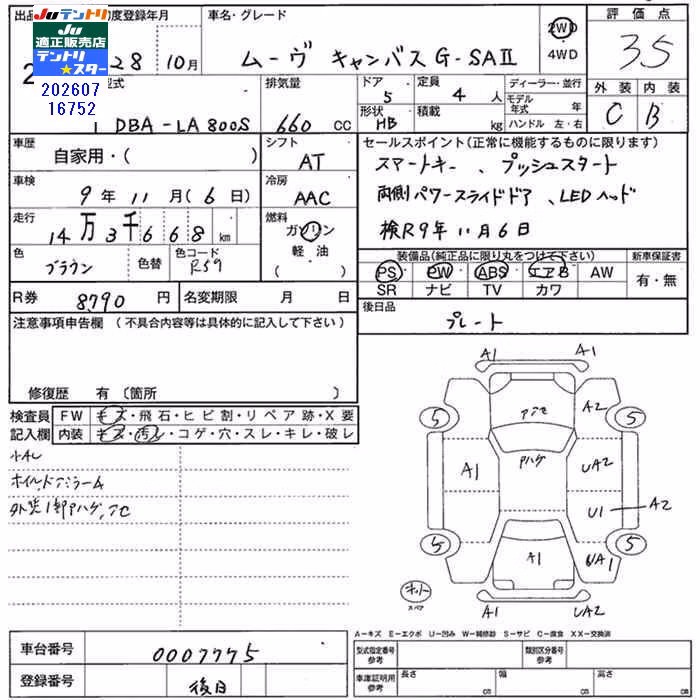 出品
Juテントリ Ju
適正販売店
テントリ
★スター
202607
16752
度登録年月
28 10月
車名・グレード
ムーヴ キャンバス G-SAⅡ
2WD
4WD
評価点
3.5
外装 内装
C B
型式
DBA-LA800S
排気量
660 CC
ドア
5
形状
HB
定員
4 人
積載
kg
ディーラー・並行
モデル年式 年
ハンドル 左・右
車歴
自家用・( )
シフト
AT
車検
9年 11月(6日)
冷房
AAC
走行
14万3千668 km
燃料
ガソリン
軽油
( )
色
ブラウン
色替
色コード
R59
R券
8790 円
名変期限 月 日
セールスポイント(正常に機能するものに限ります)
スマートキー、プッシュスタート
両側パワースライドドア、LEDヘッド
検R9年11月6日
装備品(純正品に限り丸をつけて下さい)
PS・PW・ABS・エアB・AW
SR ナビ TV カワ
新車保証書
有・無
後日品
プレート
注意事項申告欄 (不具合内容等は具体的に記入して下さい)
修復歴 有〔箇所 〕
検査員
記入欄
FW キズ・飛石・ヒビ割・リペア跡・X要
内装 キズ・汚レ・コゲ・穴・スレ・キレ・破レ
小AU
外装1部Pハゲ、アセ
A1 A1
5 アセ A2 5
A1 Pハゲ UA2
U1 A2
5 A1 UA1 5
スペア
A1 UA2
A−キズ E−エクボ U−凹み W−補修跡 S−サビ C−腐食 XX−交換済
車台番号
0007775
登録番号
後日
型式指定番号
参考
類別区分番号
参考
車庫証明用
参考
長さ cm
幅 cm
高さ cm